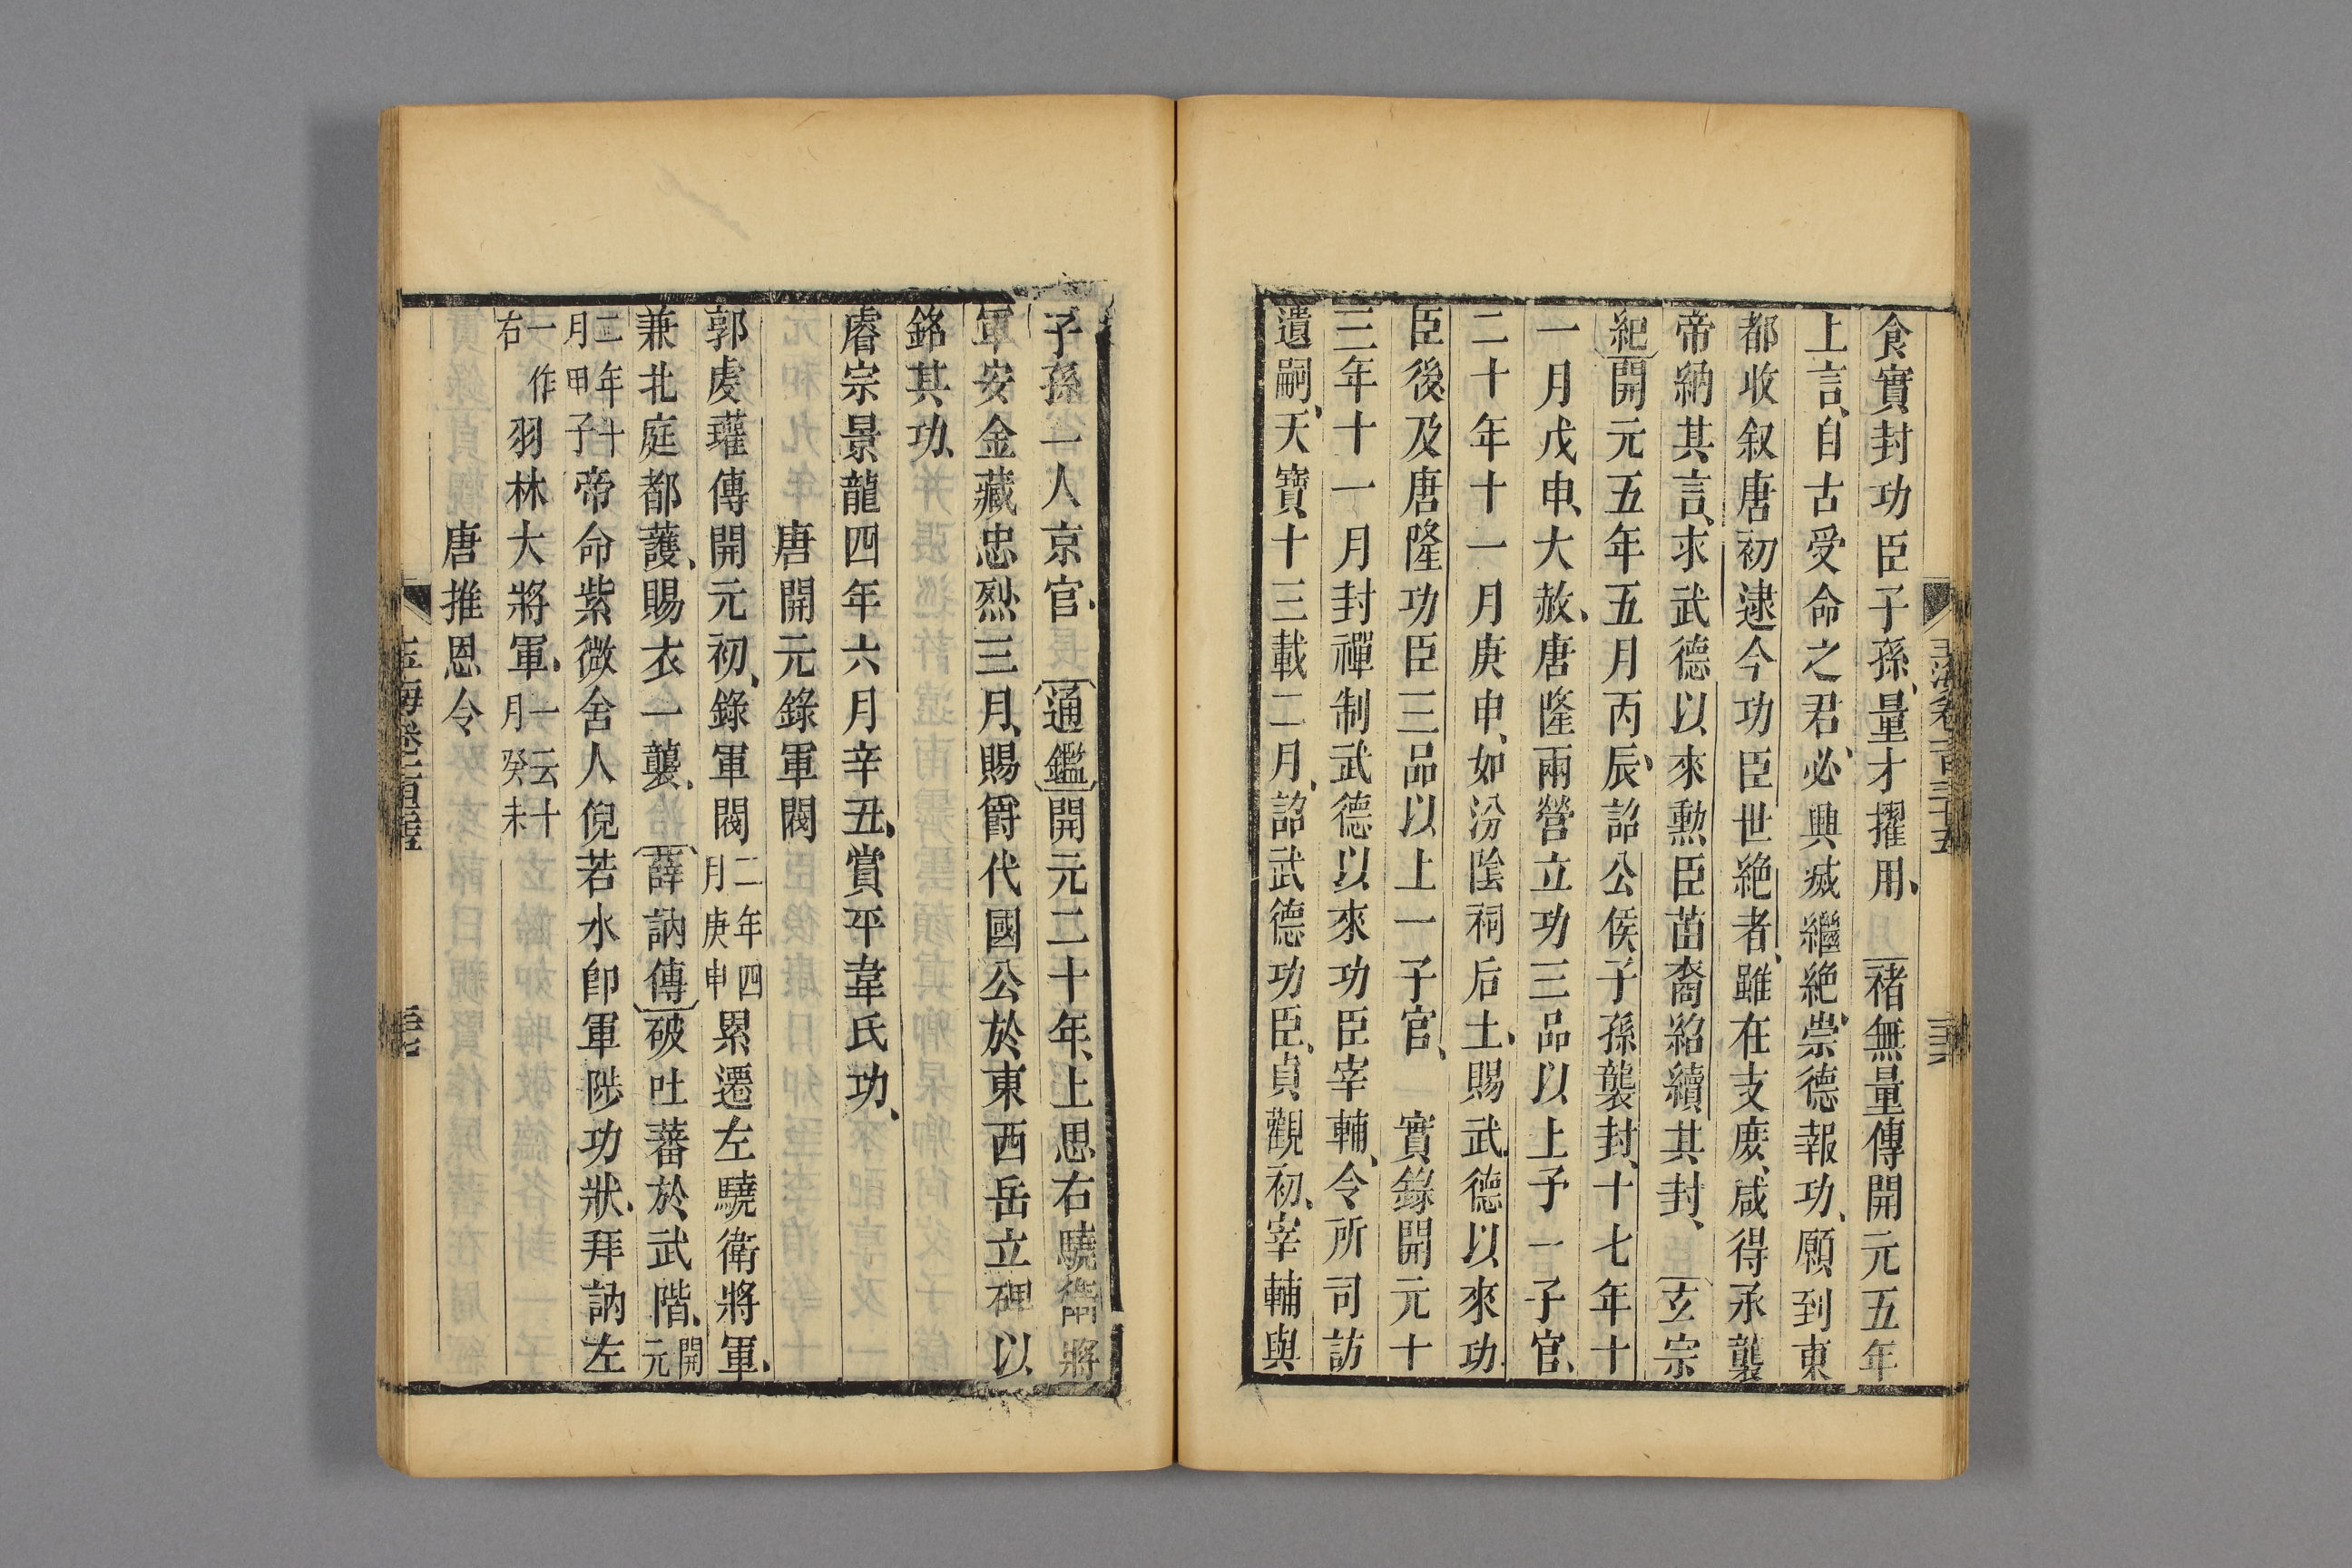 食實封功臣子孫、量才擢用、褚無量傳開元五年
上言、自古受命之君、必興㓕繼絶、崇德報功、願到東
都收叙唐初逮今功臣世絶者、雖在支庻、咸得承襲
帝納其言、求武德以來勲臣苗裔紹續其封、玄宗
紀開元五年五月丙辰、詔公侯子孫襲封、十七年十
一月戊申、大赦、唐隆兩營立功三品以上予一子官、
二十年十一月庚申、如汾陰祠后土、賜武德以來功
臣後及唐隆功臣三品以上一子官、實錄開元十
三年十一月封禪制武德以來功臣宰輔、令所司訪
遺嗣、天寶十三載二月、詔武德功臣、貞觀初、宰輔與
玉海卷二百三十五
三六
子孫一人京官、通鑑開元二十年、上思右驍衛將
軍安金藏忠烈三月、賜爵代國公於東西岳立碑以
銘其功、
睿宗景龍四年六月辛丑、賞平韋氏功、
唐開元錄軍閥
郭䖍瓘傳開元初、錄軍閥二年四月庚申累遷左驍衛將軍、
兼北庭都護、賜衣一襲、薛訥傳破吐蕃於武階、開元
二年十月甲子帝命紫微舍人倪若水卽軍陟功狀、拜訥左
一作右羽林大將軍、一云十月癸未
唐推恩令
三七